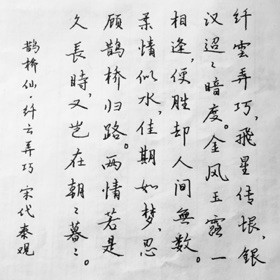 纤雲弄巧，飛星传恨，銀
汉迢〻暗度。金风玉露一
相逢，便胜却人间無数。
柔情似水，佳期如梦，忍
顾鹊桥归路。两情若是
久長時，又岂在朝〻暮〻。
鹊桥仙·纤云弄巧 宋代 秦观